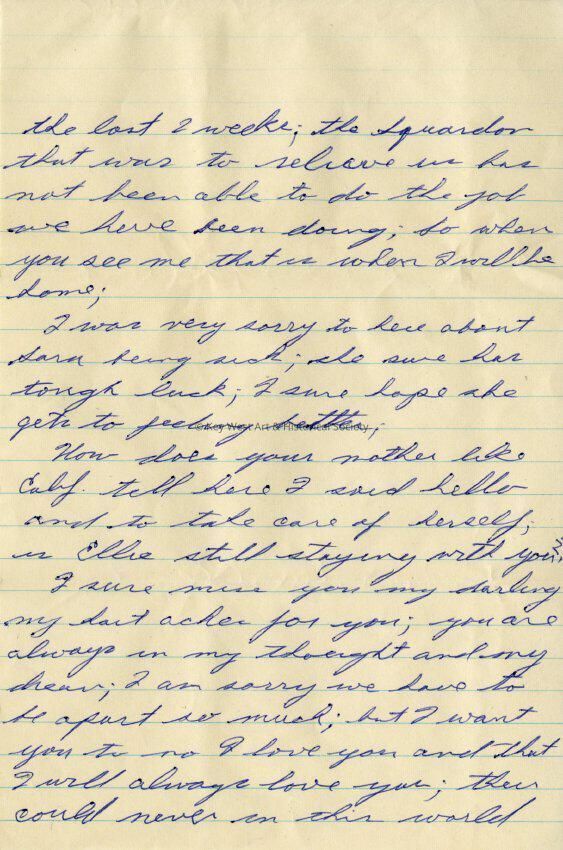 the last 2 weeks; the squardon
that was to relieve us has
not been able to do the job
we have been doing; so when
you see me that is when I will be
home;
I was very sorry to here about
Sara being sick; she sure has
tough luck; I sure hope she
gets to feeling better;
© Key West Art & Historical Society
How does your mother like
Calif. tell here I said hello
and to take care of herself;
is Ellie still staying with you?
I sure miss you my darling
my hart aches for you; you are
always in my thought and my
drean; I am sorry we have to
be apart so much; but I want
you to no I love you and that
I will always love you; ther
could never in this world